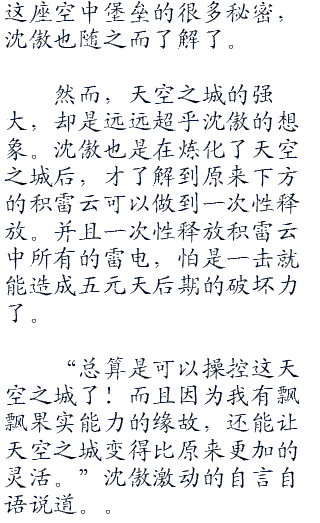 这座空中堡垒的很多秘密，
沈傲也随之而了解了。
然而，天空之城的强
大，却是远远超乎沈傲的想
象。沈傲也是在炼化了天空
之城后，才了解到原来下方
的积雷云可以做到一次性释
放。并且一次性释放积雷云
中所有的雷电，怕是一击就
能造成五元天后期的破坏力
了。
“总算是可以操控这天
空之城了！而且因为我有飘
飘果实能力的缘故，还能让
天空之城变得比原来更加的
灵活。”沈傲激动的自言自
语说道。。